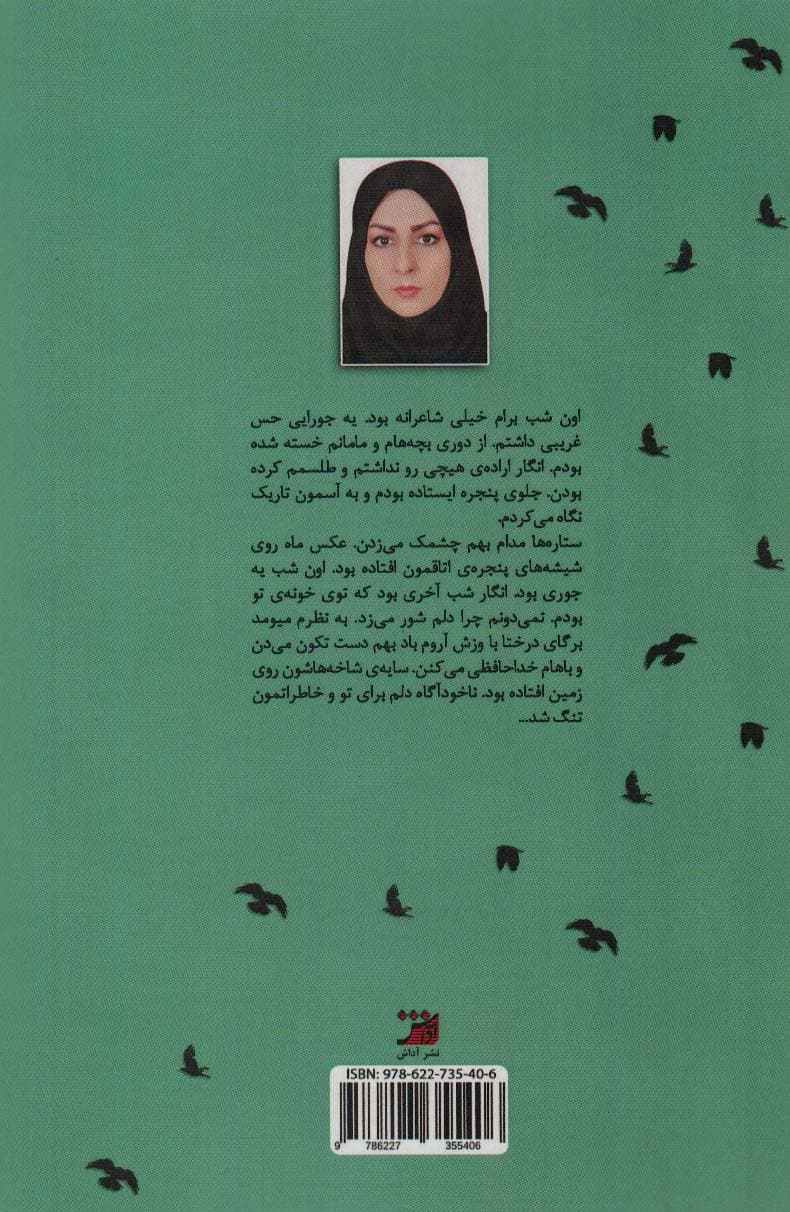 اون شب برام خیلی شاعرانه بود. یه جورایی حس
غریبی داشتم. از دوری بچه‌هام و مامانم خسته شده
بودم. انگار اراده‌ی هیچی رو نداشتم و طلسمم کرده
بودن. جلوی پنجره ایستاده بودم و به آسمون تاریک
نگاه می‌کردم.
ستاره‌ها مدام بهم چشمک می‌زدن. عکس ماه روی
شیشه‌های پنجره‌ی اتاقمون افتاده بود. اون شب یه
جوری بود. انگار شب آخری بود که توی خونه‌ی تو
بودم. نمی‌دونم چرا دلم شور می‌زد. به نظرم میومد
برگای درختا با وزش آروم باد بهم دست تکون می‌دن
و باهام خداحافظی می‌کنن. سایه‌ی شاخه‌هاشون روی
زمین افتاده بود. ناخودآگاه دلم برای تو و خاطراتمون
تنگ شد...
آداش
نشر آداش
ISBN: 978-622-735-40-6
9 786227 355406